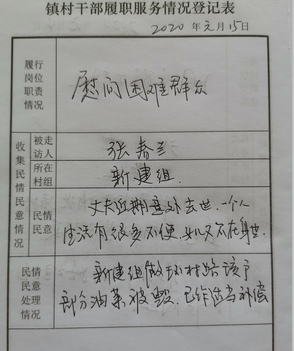 镇村干部履职服务情况登记表
2020年元月15日
履行岗位职责情况
慰问困难群众
收集民情民意情况
被走访人
张春兰
所在村组
新建组
民情民意
丈夫近期意外去世,一个人
生活有很多不便,女儿又不在身边
民情民意处理情况
新建组做环村路该户
部分油菜被毁,已作适当补偿